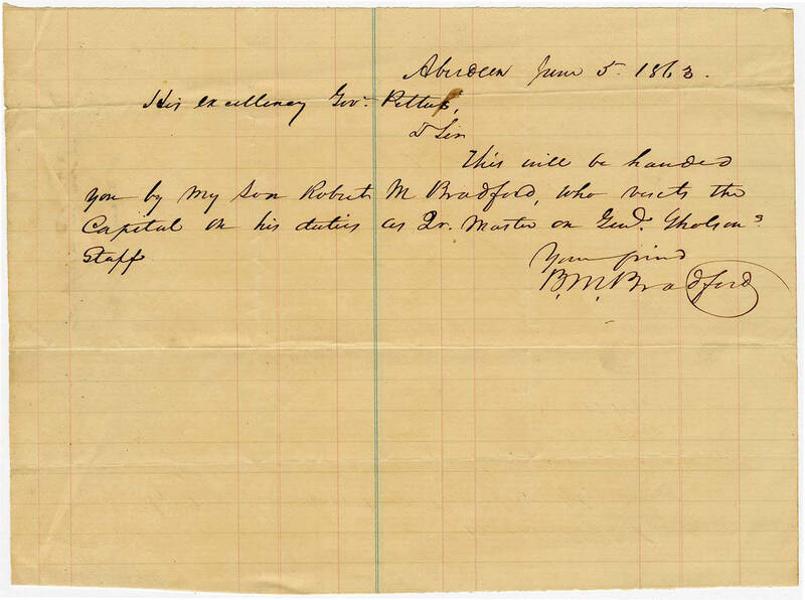 Aberdeen June 5. 1863.
His excellency Gov. Pettus,
D Sir
This will be handed
you by my Son Robert M Bradford, who visits the
Capital on his duties as Qr. Master on Genl. Gholson's
Staff
Your friend
B. M. Bradford